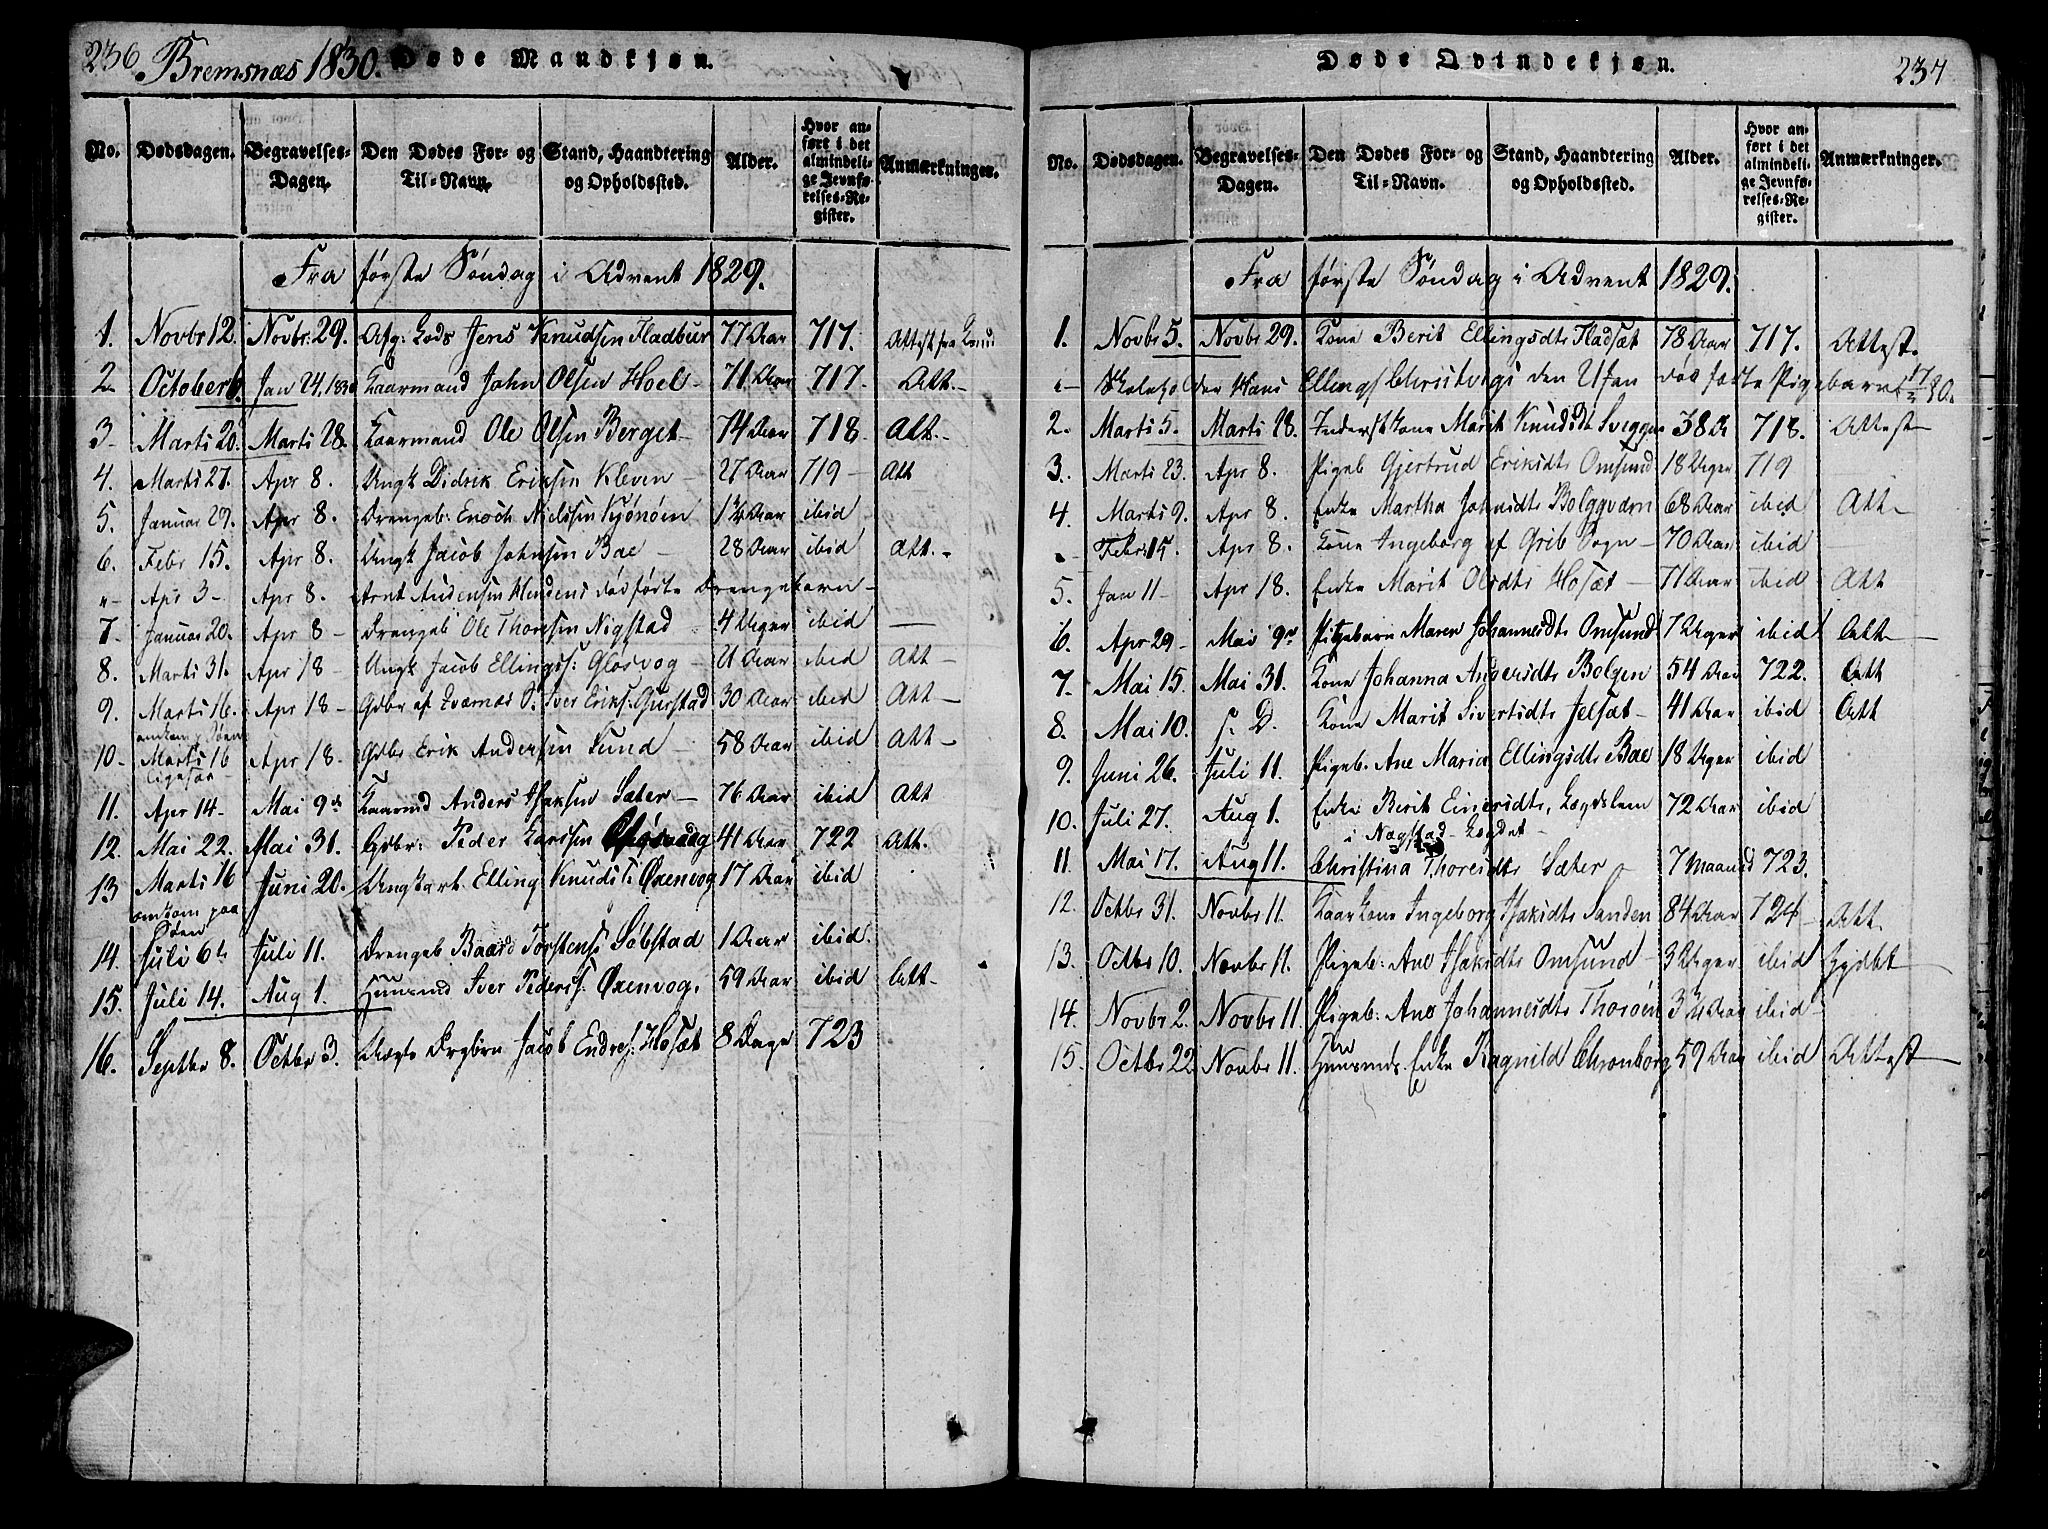 236 Bremsnæs 1830. Døde Mandkjøn.
No. Dødsdagen. Begravelses-Dagen. Den Dødes For- og Til-Navn. Stand, Haandtering og Opholdssted. Alder. Hvor anført i det almindelige Jevnførelses-Register. Anmærkninger.
Fra første Søndag i Advent 1829.
1. Novbr 12. Novbr: 29. Jens Knudsen Fladbur 77 Aar 717. Attest fra
2 October 6. Jan 24, 1830 Kaarmand John Olsen Hoel 71 Aar 717. Att.
3 Marti 20. Marti 28. Kaarmand Ole Olsen Berget 74 Aar 718. Att.
4. Marti 27. Apr 8. Ungk Didrik Eriksen Kleven 27 Aar 719 Att
5. Januar 29. Apr 8. Drengeb: Enoch Nielsen Kjønøen 1¼ Aar ibid
6. Febr 15. Apr 8. Ungk Jacob Johnsen Bae 28 Aar ibid Att.
" Apr 3 Apr 8. Arnt Andersen dødfødte Drengebarn
7. Januar 20. Apr 8 Drengeb Ole Thoresen Nigstad 4 Uger ibid
8. Marti 31. Apr 18 Ungk Jacob Ellings: Gløsvog 21 Aar ibid Att
9. Marti 16. Apr 18 Gdbr af Iver Eriks: Gurstad 30 Aar ibid Att
omkom i Søen
10 Marti 16 Apr 18 Gdbr Erik Andersen Sund 58 Aar ibid Att
ligesaa
11. Apr 14 Mai 9de Kaarmd Anders Isaksen Sæter 76 Aar ibid Att
12. Mai 22. Mai 31. Gdbr: Peder Larssen 41 Aar 722 Att.
13 Marti 16 Juni 20. Ungkarl Elling Knuds: Øxenvog 17 Aar ibid
omkom paa Søen
14. Juli 6te Juli 11. Drengeb Baard Torstens: Søbstad 1 Aar ibid.
15. Juli 14. Aug 1. Huusmd Iver Peders: Øxenvog. 59 Aar ibid Att
16. Septbr 8. Octbr 3. Jacob Endres: Hosæt 8 Dage 723
Døde Qvindekjøn. 237
No. Dødsdagen. Begravelses-Dagen. Den Dødes For- og Til-Navn. Stand, Haandtering og Opholdssted. Alder. Hvor anført i det almindelige Jevnførelses-Register. Anmærkninger.
Fra første Søndag i Advent 1829.
1. Novbr 5. Novbr 29. Kone Berit Ellingsdtr Fladsæt 78 Aar 717. Attest.
Hans Ellings dødfødte Pigebarn
2. Marti 5. Marti 28. Marit Knudsdtr 38 A 718. Attest
3. Marti 23. Apr 8. Pigeb Gjertrud Eriksdtr Omsund 18 Uger 719
4. Marti 9. Apr 8. Enke Martha Johnsdtr Bolggværn 68 Aar ibid Att
Febr: 15. Apr 8. Kone Ingeborg af Grib Sogn 70 Aar ibid
5. Jan 11 Apr 18. Enke Marit Olsdtr Hosæt 71 Aar ibid Att
6. Apr 29 Mai 9de Pigebarn Maren Johannesdtr Omsund 7 Uger ibid Att
7. Mai 15. Mai 31. Kone Johanna Andersdtr Bolgen 54 Aar 722. Att
8. Mai 10. s. D. Kone Marit Sivertsdtr Jelsæt 41 Aar ibid Att
9. Juni 26. Juli 11. Pigeb. Ane Maria Ellingsdtr Bae 18 Uger ibid
10. Juli 27. Aug 1. Enke Berit Einersdtr, Lægdslem 72 Aar ibid
i Nægstad Lægdet
11. Mai 17. Aug 11. Christina Thoresdtr Sæter 7 Maaned 723.
12. Octbr 31. Novbr 11. Kaarkone Ingeborg Isaksdtr Sanden 84 Aar 724 Att.
13. Octbr 10. Novbr 11. Pigeb: Ane Isaksdtr Omsund 3 Uger ibid Hjdbt
14. Novbr 2. Novbr 11. Pigeb: Ane Johannesdtr Thorøen 3¼ Aar ibid
15. Octbr 22 Novbr 11. Huusmds Enke Ragnild Chronborg 59 Aar ibid Attest